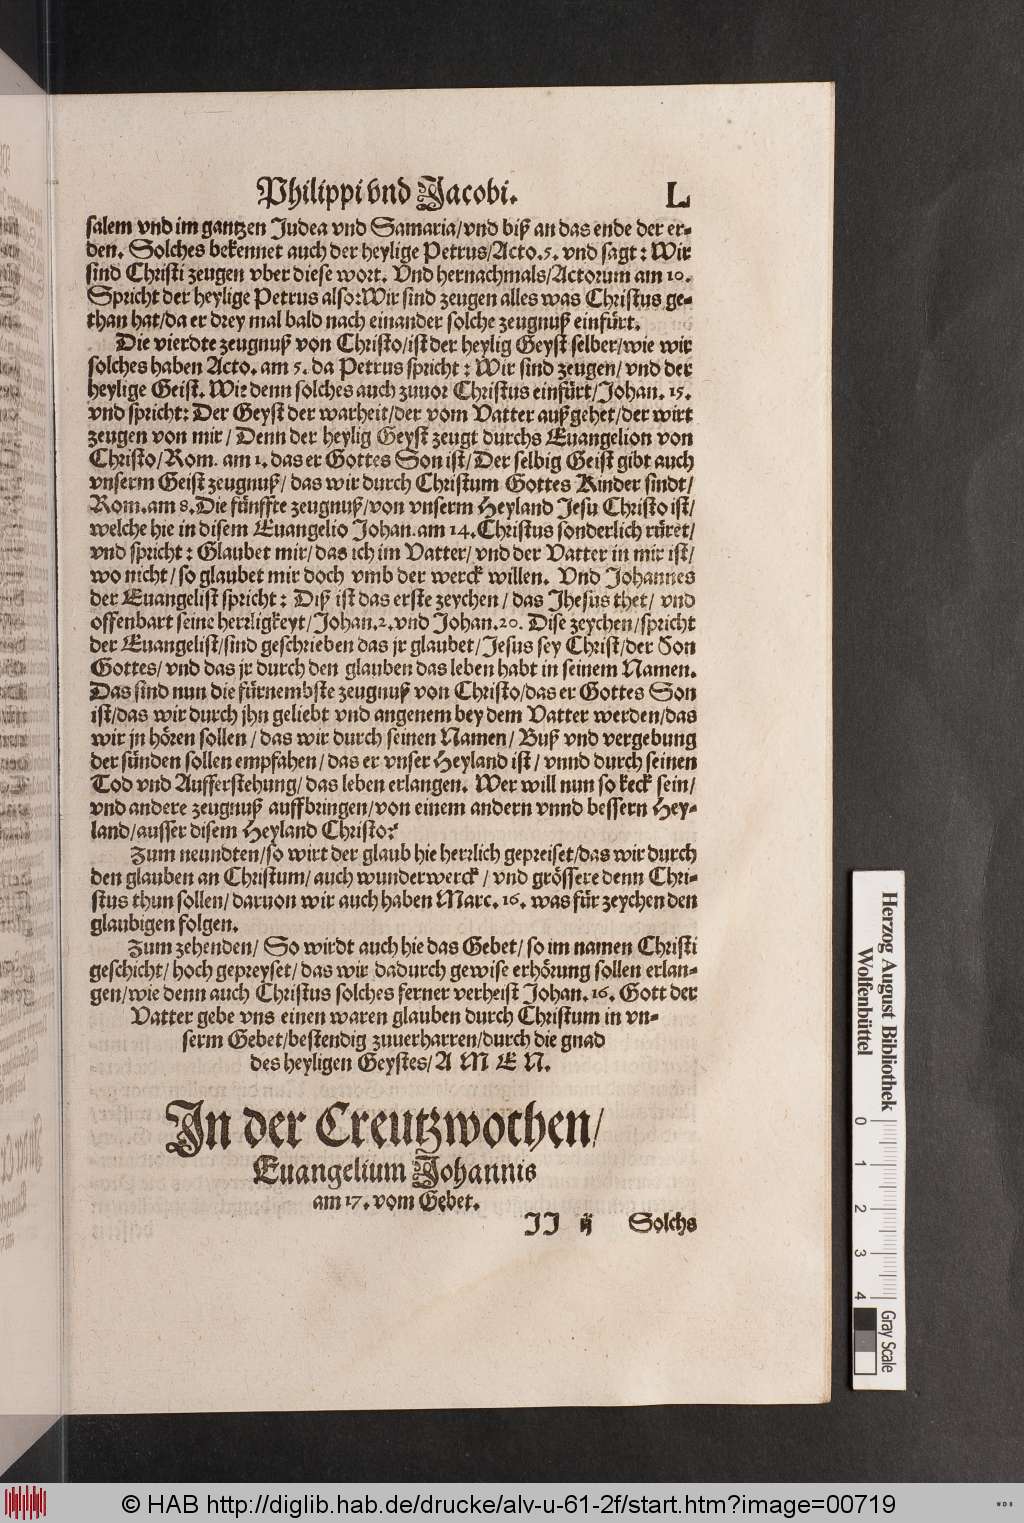 Philippi vnd Jacobi. L
salem vnd im gantzen Judea vnd Samaria/vnd biß an das ende der er-
den. Solches bekennet auch der heylige Petrus/Acto.5. vnd sagt: Wir
sind Christi zeugen vber diese wort. Vnd hernachmals/Actorum am 10.
Spricht der heylige Petrus also: Wir sind zeugen alles was Christus ge-
than hat/da er drey mal bald nach einander solche zeugnuß einfürt.
Die vierdte zeugnuß von Christo/ist der heylig Geyst selber/wie wir
solches haben Acto. am 5. da Petrus spricht: Wir sind zeugen/ vnd der
heylige Geist. Wie denn solches auch zuuor Christus einfürt/Johan. 15.
vnd spricht: Der Geyst der warheit/der vom Vatter außgehet/der wirt
zeugen von mir/ Denn der heylig Geyst zeugt durchs Euangelion von
Christo/Rom. am 1. das er Gottes Son ist/ Der selbig Geist gibt auch
vnserm Geist zeugnuß/ das wir durch Christum Gottes Kinder sindt/
Rom.am 8. Die fünffte zeugnuß/von vnserm Heyland Jesu Christo ist/
welche hie in disem Euangelio Johan.am 14. Christus sonderlich rüret/
vnd spricht: Glaubet mir/das ich im Vatter/ vnd der Vatter in mir ist/
wo nicht/so glaubet mir doch vmb der werck willen. Vnd Johannes
der Euangelist spricht: Diß ist das erste zeychen/ das Jhesus thet/ vnd
offenbart seine herrligkeyt/Johan.2. vnd Johan.20. Dise zeychen/spricht
der Euangelist/sind geschrieben das jr glaubet/Jesus sey Christ/der Son
Gottes/ vnd das jr durch den glauben das leben habt in seinem Namen.
Das sind nun die fürnembste zeugnuß von Christo/das er Gottes Son
ist/das wir durch jhn geliebt vnd angenem bey dem Vatter werden/das
wir jn hören sollen/ das wir durch seinen Namen/ Buß vnd vergebung
der sünden sollen empfahen/das er vnser Heyland ist/ vnnd durch seinen
Tod vnd Aufferstehung/das leben erlangen. Wer will nun so keck sein/
vnd andere zeugnuß auffbringen/von einem andern vnnd bessern Hey-
land/ausser disem Heyland Christo?
Zum neundten/so wirt der glaub hie herrlich gepreiset/das wir durch
den glauben an Christum/auch wunderwerck/ vnd grössere denn Chri-
stus thun sollen/daruon wir auch haben Marc. 16. was für zeychen den
glaubigen folgen.
Zum zehenden/ So wirdt auch hie das Gebet/ so im namen Christi
geschicht/hoch gepreyset/das wir dadurch gewise erhörung sollen erlan-
gen/wie denn auch Christus solches ferner verheist Johan. 16. Gott der
Vatter gebe vns einen waren glauben durch Christum in vn-
serm Gebet/bestendig zuuerharren/durch die gnad
des heyligen Geystes/A M E N.
In der Creutzwochen/
Euangelium Johannis
am 17. vom Gebet.
JJ ij Solchs
Herzog August Bibliothek
Wolfenbüttel
0 1 2 3 4
Gray Scale
© HAB http://diglib.hab.de/drucke/alv-u-61-2f/start.htm?image=00719